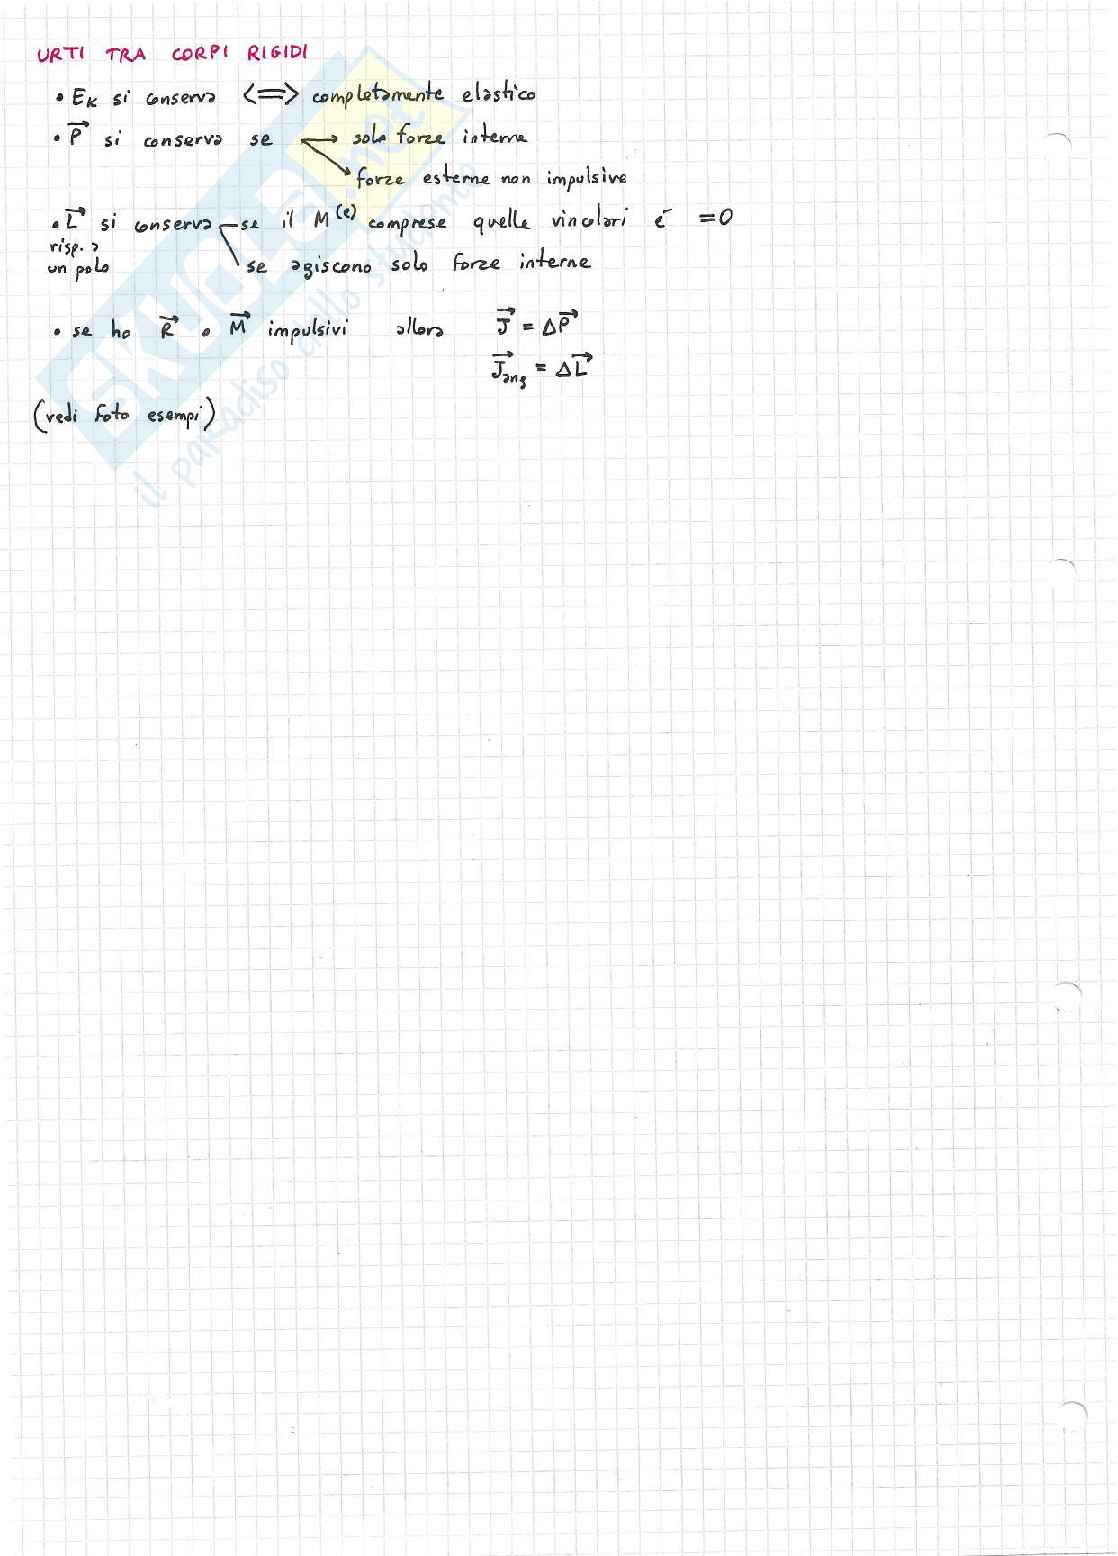 URTI TRA CORPI RIGIDI
• Eₖ si conserva <=> completamente elastico
• P⃗ si conserva se → solo forze interne
→ forze esterne non impulsive
• L⃗ si conserva — se il M⁽ᵉ⁾ comprese quelle vincolari é = 0
risp. a
un polo
se agiscono solo forze interne
• se ho R⃗ o M⃗ impulsivi allora J⃗ = ΔP⃗
J⃗ang = ΔL⃗
(vedi foto esempi)
SKUOLA.net
il paradiso dello studente